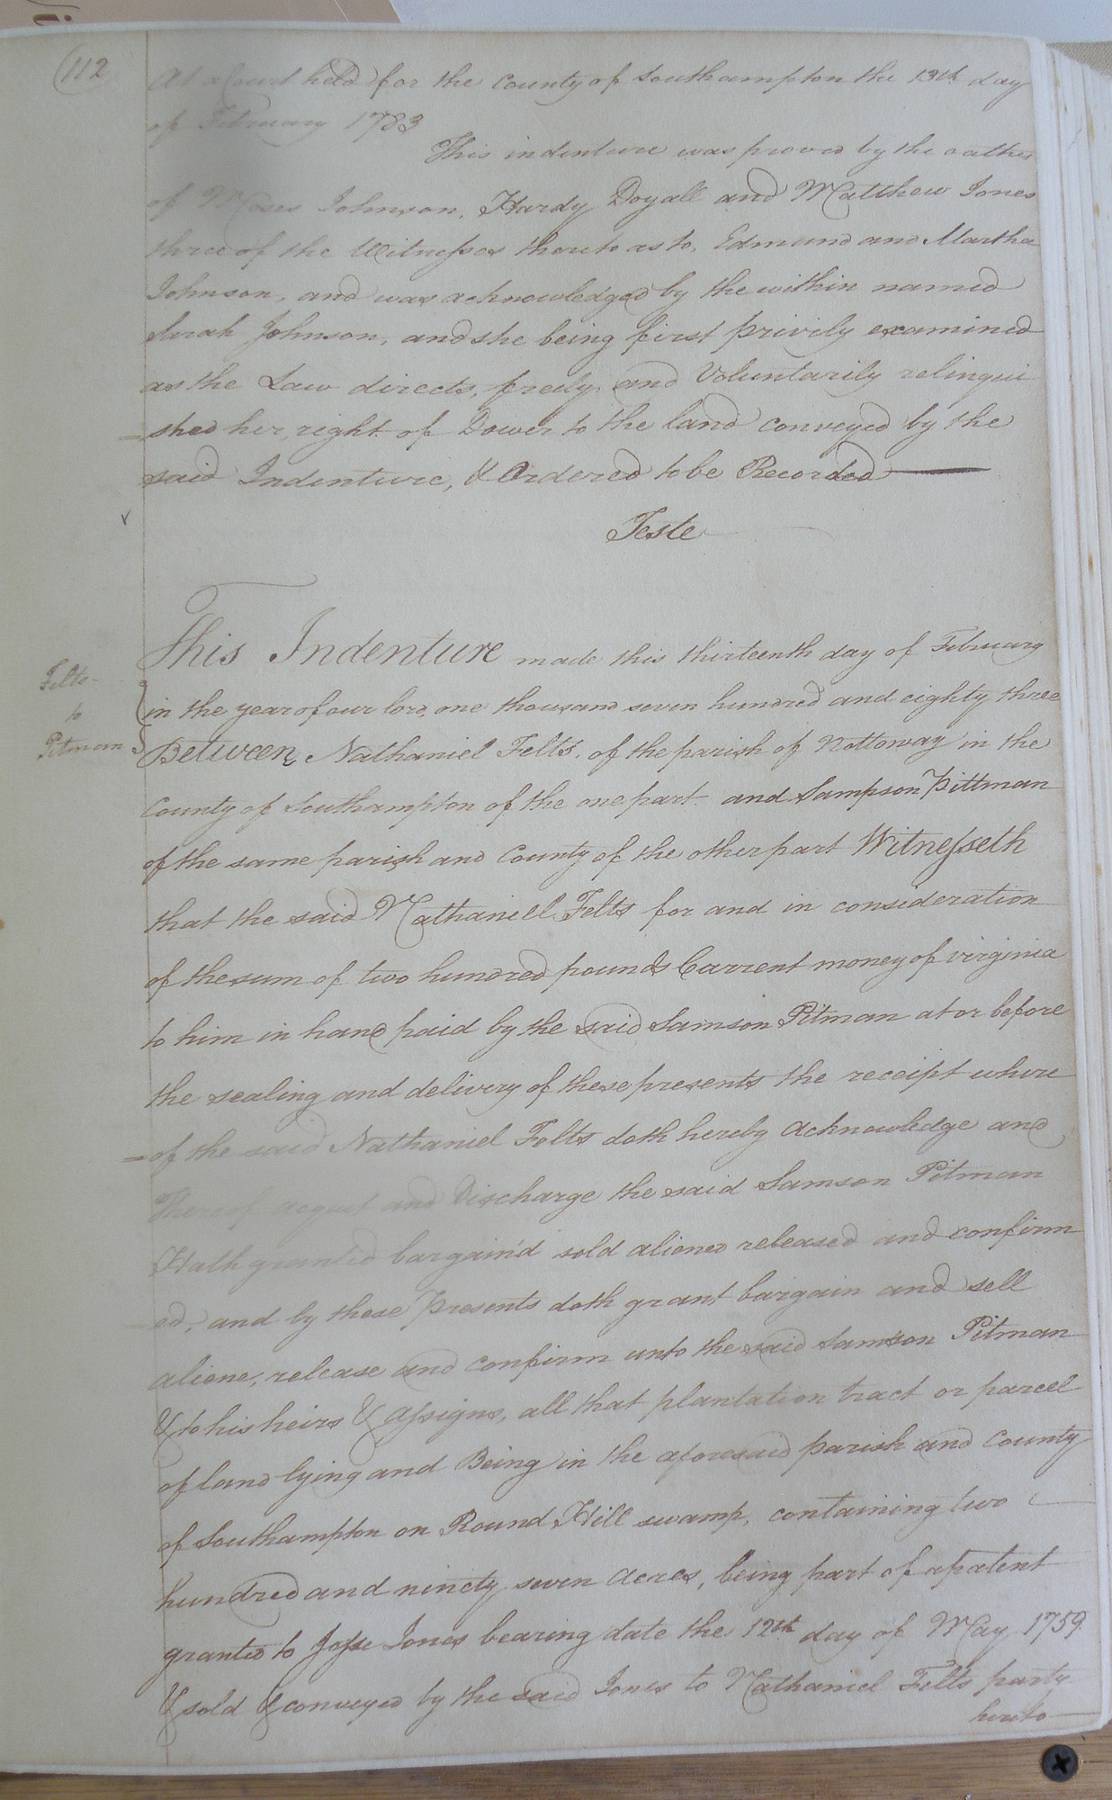 112
At a Court held for the County of Southampton the 13th day
of February 1783
This indenture was proved by the oathes
of Moses Johnson, Hardy Doyall and Matthew Jones
three of the Witnesses thereto as to, Edmund and Martha
Johnson, and was acknowledged by the within named
Sarah Johnson, and she being first privily examined
as the Law directs, freely and Voluntarily relinqui
=shed her right of Dower to the land conveyed by the
said Indenture, & Ordered to be Recorded
Teste
This Indenture made this thirteenth day of February
in the year of our lord, one thousand seven hundred and eighty three
Between Nathaniel Felts, of the parish of Nottoway in the
County of Southampton of the one part and Sampson Pittman
of the same parish and County of the other part Witnesseth
that the said Nathaniell Felts for and in consideration
of the sum of two hundred pounds Currant money of virginia
to him in hand paid by the said Samson Pitman at or before
the sealing and delivery of these presents the receipt where
=of the said Nathaniel Felts doth hereby acknowledge and
Thereof acquit and Discharge the said Samson Pitman
Hath granted bargain'd sold aliened released and confirm
ed, and by these Presents doth grant bargain and sell
aliene, release and confirm unto the said Samson Pitman
& to his heirs & assigns, all that plantation tract or parcel
of land lying and Being in the aforesaid parish and County
of Southampton on Round Hill swamp, containing two
hundred and ninety seven acres, being part of a patent
granted to Josse Jones bearing date the 12th day of May 1759
& sold & conveyed by the said Jones to Nathaniel Felts party
hereto
Felts
to
Pitman